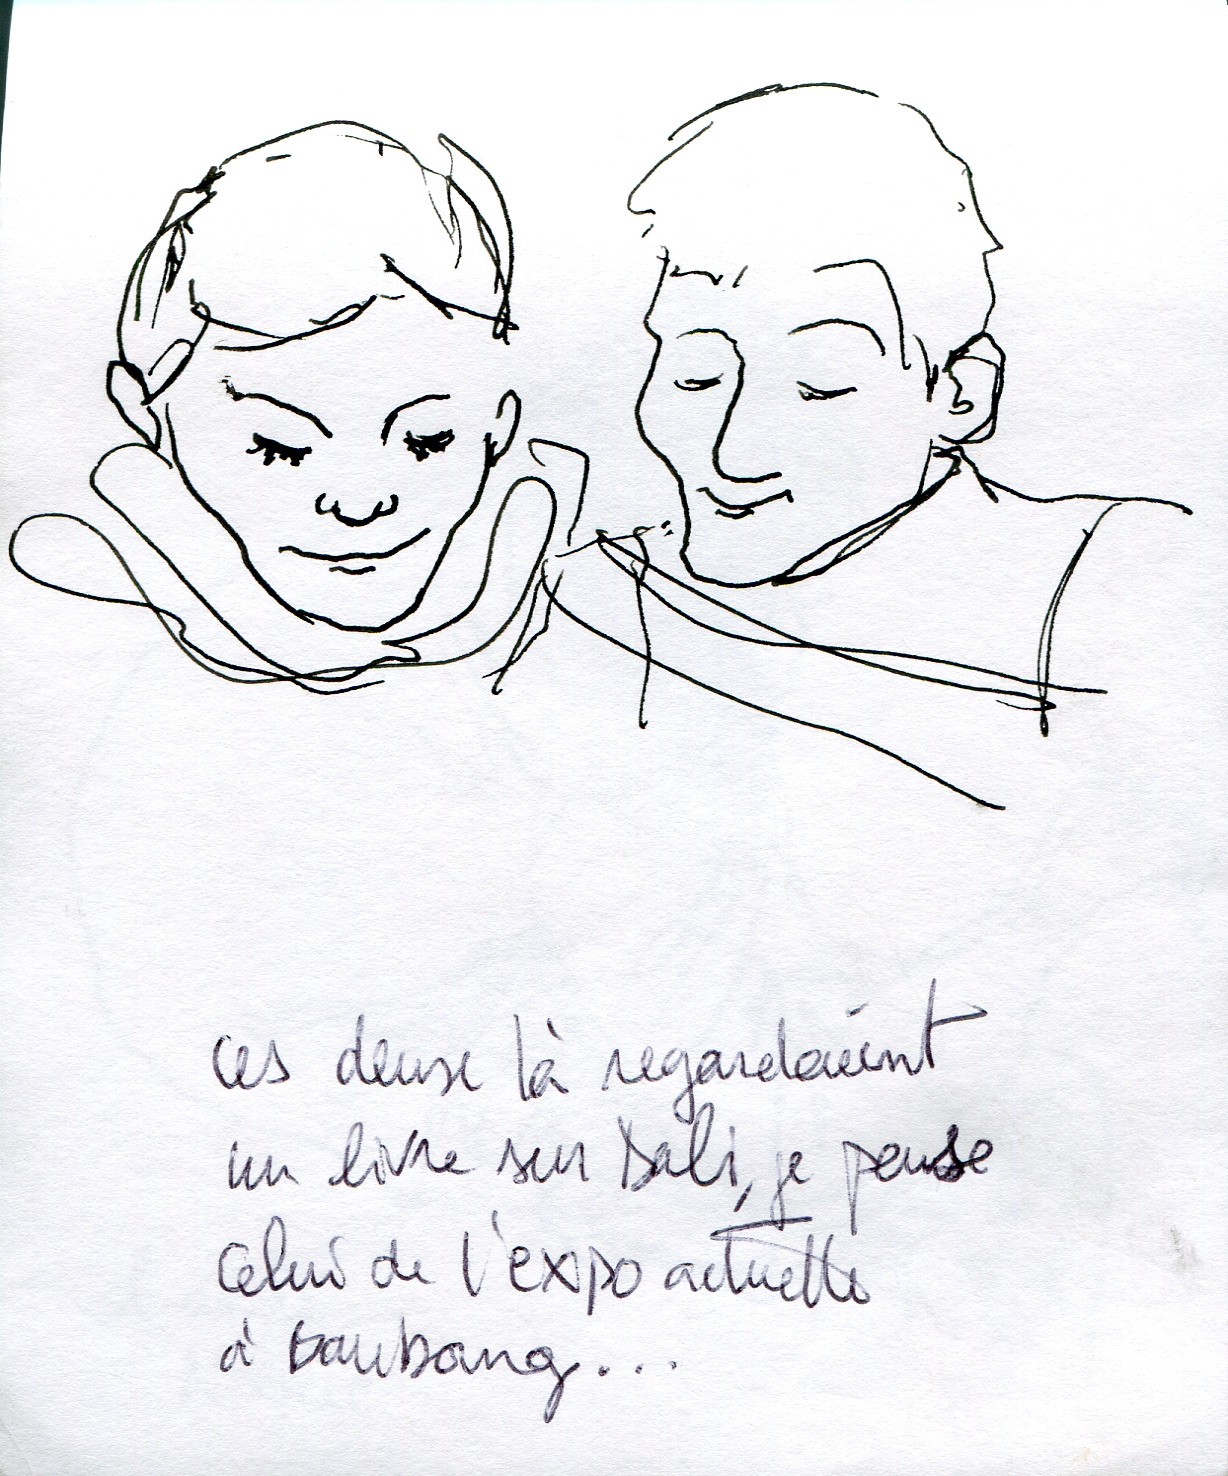 ces deux là regardaient
un livre sur Dali, je pense
celui de l'expo actuelle
à Baubourg...